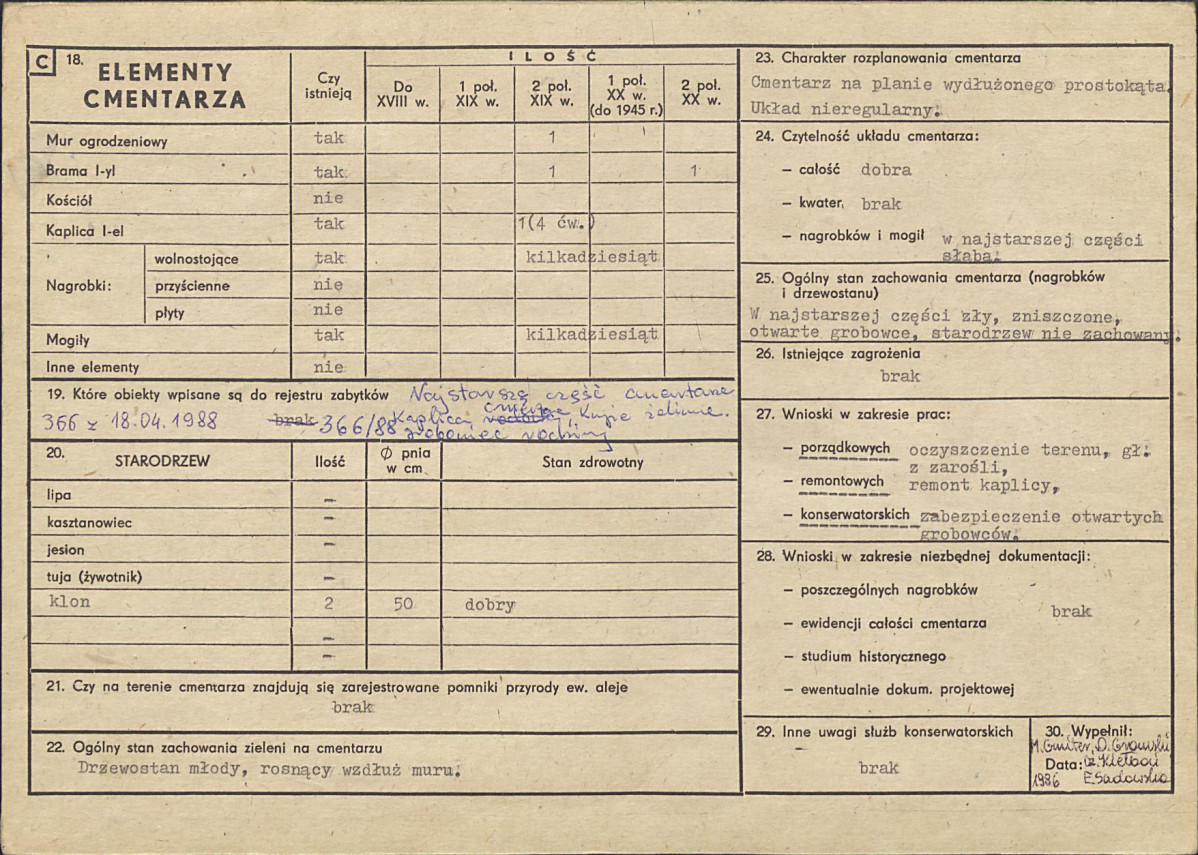 C 18. ELEMENTY CMENTARZA
Czy istnieją
ILOŚĆ
Do XVIII w.
1 poł. XIX w.
2 poł. XIX w.
1 poł. XX w. (do 1945 r.)
2 poł. XX w.
Mur ogrodzeniowy tak 1
Brama I-yl tak 1 1
Kościół nie
Kaplica I-el tak 1(4 ćw.)
Nagrobki:
wolnostojące tak kilkadziesiąt
przyścienne nie
płyty nie
Mogiły tak kilkadziesiąt
Inne elementy nie
19. Które obiekty wpisane są do rejestru zabytków Najstarszą część cmentarza
366 z 18.04.1988 brak 366/88 Kaplica,
grobowiec rodziny
20. STARODRZEW Ilość Ø pnia w cm Stan zdrowotny
lipa –
kasztanowiec –
jesion –
tuja (żywotnik) –
klon 2 50 dobry
–
–
21. Czy na terenie cmentarza znajdują się zarejestrowane pomniki przyrody ew. aleje
brak
22. Ogólny stan zachowania zieleni na cmentarzu
Drzewostan młody, rosnący wzdłuż muru.
23. Charakter rozplanowania cmentarza
Cmentarz na planie wydłużonego prostokąta.
Układ nieregularny.
24. Czytelność układu cmentarza:
– całość dobra
– kwater, brak
– nagrobków i mogił w najstarszej części
słaba.
25. Ogólny stan zachowania cmentarza (nagrobków
i drzewostanu)
W najstarszej części zły, zniszczone,
otwarte grobowce, starodrzew nie zachowany.
26. Istniejące zagrożenia
brak
27. Wnioski w zakresie prac:
– porządkowych oczyszczenie terenu, gł.
z zarośli,
– remontowych remont kaplicy,
– konserwatorskich zabezpieczenie otwartych
grobowców.
28. Wnioski w zakresie niezbędnej dokumentacji:
– poszczególnych nagrobków
brak
– ewidencji całości cmentarza
– studium historycznego
– ewentualnie dokum. projektowej
29. Inne uwagi służb konserwatorskich
brak
30. Wypełnił:
Data:
1986 E. Sadowska